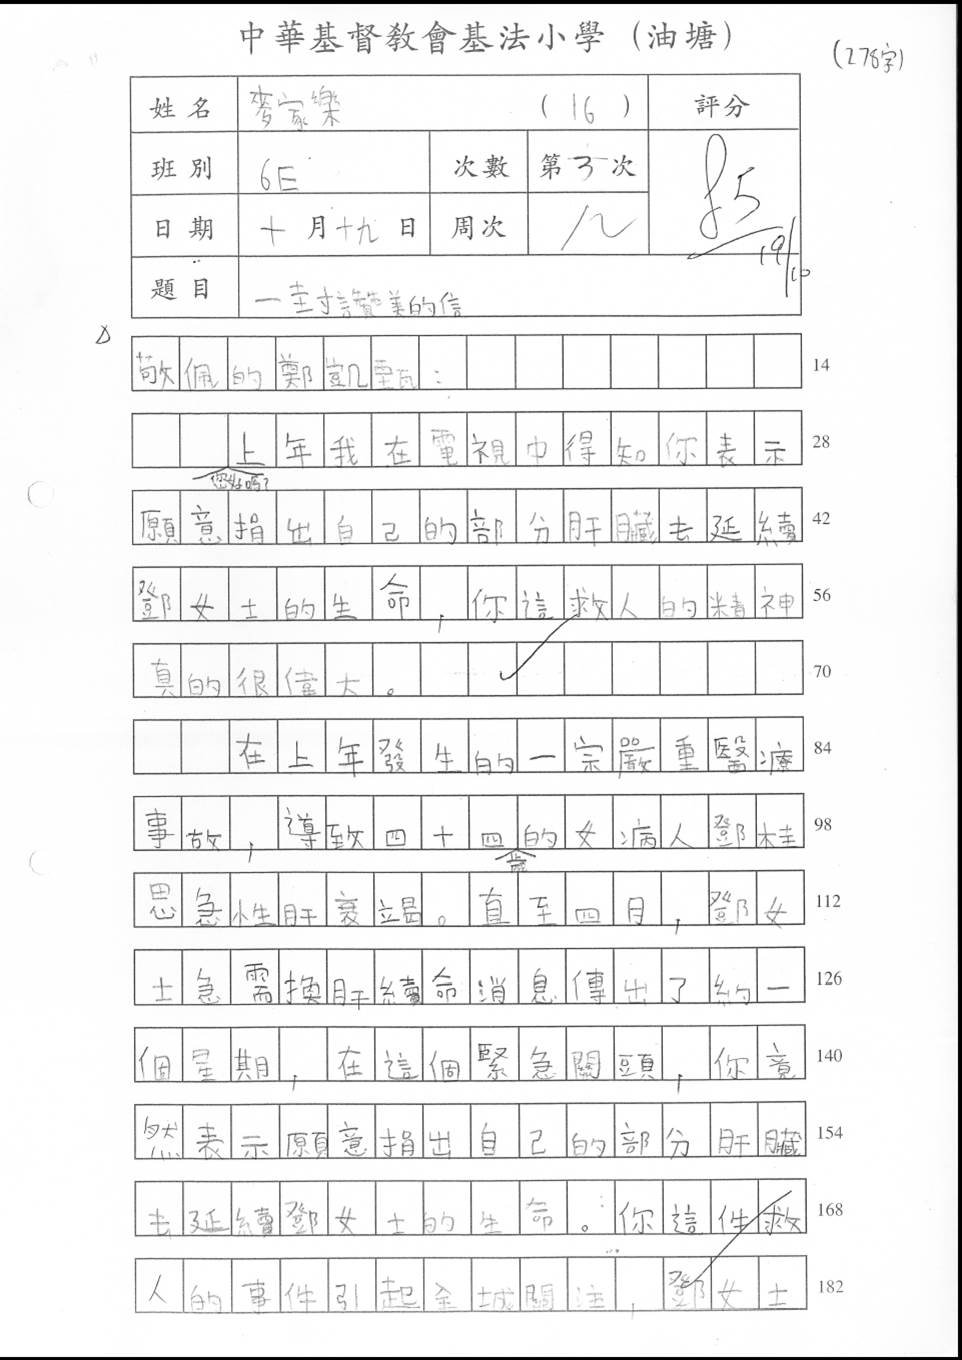 中華基督教會基法小學（油塘）
(278字)
姓名 麥家樂 (16) 評分
班別 6E 次數 第3次
85
日期 十月十九日 周次 八
19/10
題目 一封讚美的信
敬佩的鄭凱甄： 14
上年我在電視中得知你表示 28
您好嗎？
願意捐出自己的部分肝臟去延續 42
鄧女士的生命，你這救人的精神 56
真的很偉大。 70
在上年發生的一宗嚴重醫療 84
事故，導致四十四的女病人鄧桂 98
歲
思急性肝衰竭。直至四月，鄧女 112
士急需換肝續命消息傳出了約一 126
個星期，在這個緊急關頭，你竟 140
然表示願意捐出自己的部分肝臟 154
去延續鄧女士的生命。你這件救 168
人的事件引起全城關注，鄧女士 182